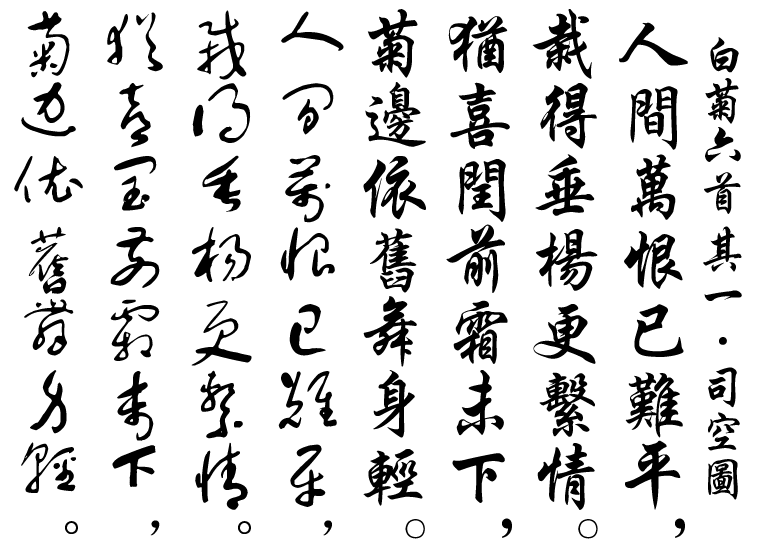 白菊六首其一·司空圖
人間萬恨已難平，
栽得垂楊更繫情。
猶喜閏前霜未下，
菊邊依舊舞身輕。
人間萬恨已難平，
栽得垂楊更繫情。
猶喜閏前霜未下，
菊邊依舊舞身輕。